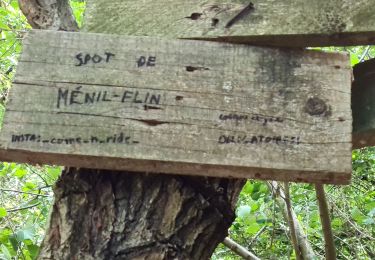 SPOT DE
MÉNIL-FLIN
INSTA: _come_n_ride_
OBLIGATOIRES!